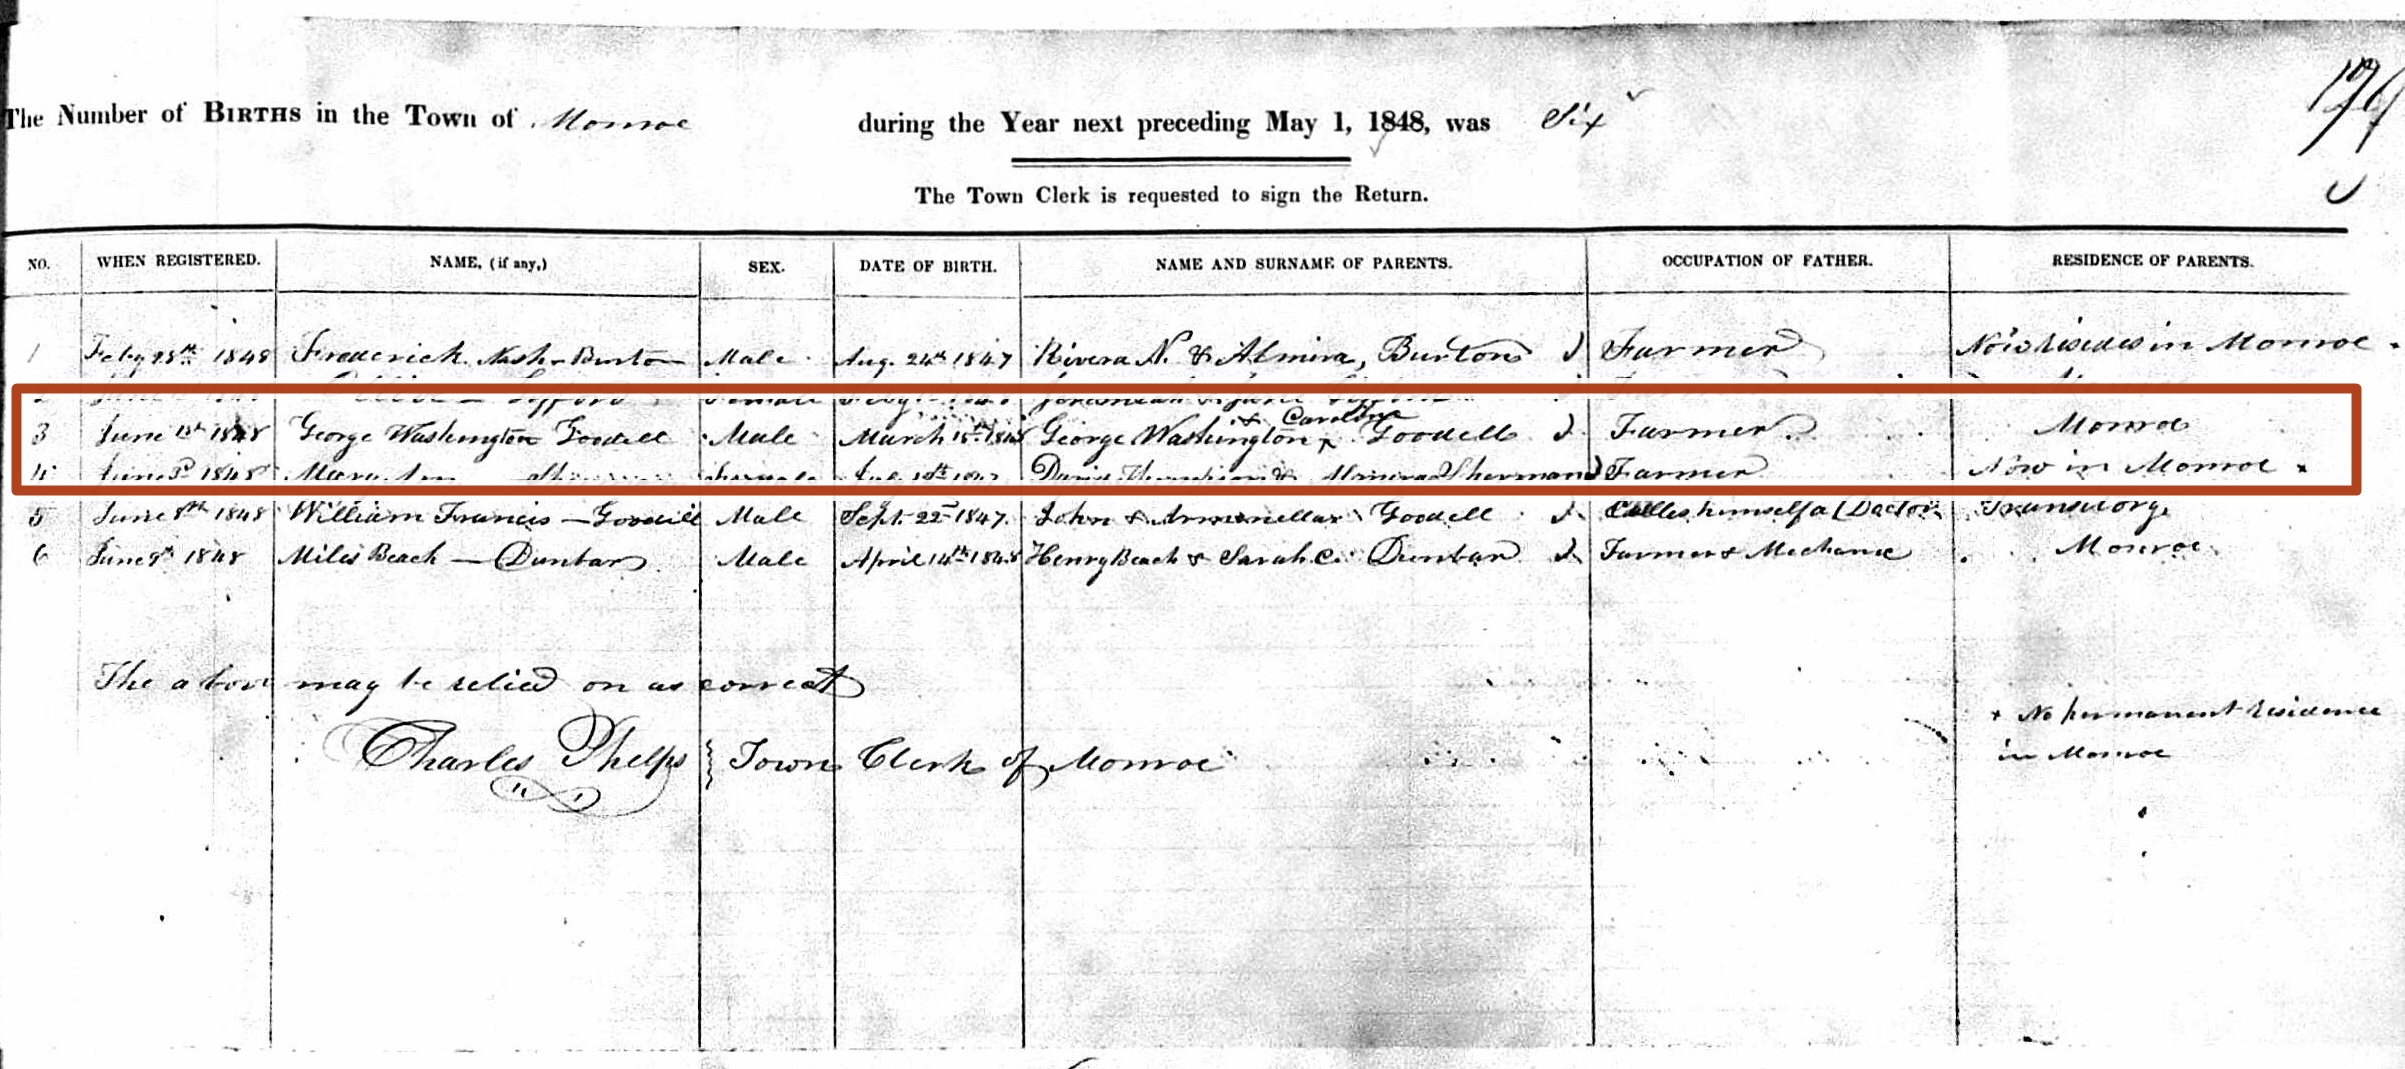 174
The Number of BIRTHS in the Town of Monroe during the Year next preceding May 1, 1848, was Six
The Town Clerk is requested to sign the Return.
NO. WHEN REGISTERED. NAME, (if any,) SEX. DATE OF BIRTH. NAME AND SURNAME OF PARENTS. OCCUPATION OF FATHER. RESIDENCE OF PARENTS.
1 Feby 28th 1848 Frederick Nash Burton Male Aug. 24th 1847 Rivera N. & Almira, Burton Farmer Now resides in Monroe
3 June 1848 George Washington Goodell Male March 15th 1848 George Washington & Caroline Goodell Farmer. Monroe
4 June 3d 1848 Mary Ann Female & Sherman Farmer Now in Monroe
5 June 8th 1848 William Francis — Goodell Male Sept. 22 1847. John & Goodell Calls himself a Doctor
6 June 9th 1848 Miles Beach — Dunbar Male April 14th 1848 Henry Beach & Sarah C. Dunbar Farmer & Mechanic Monroe
The above may be relied on as correct
Charles Phelps } Town Clerk of Monroe
+ No permanent residence
in Monroe